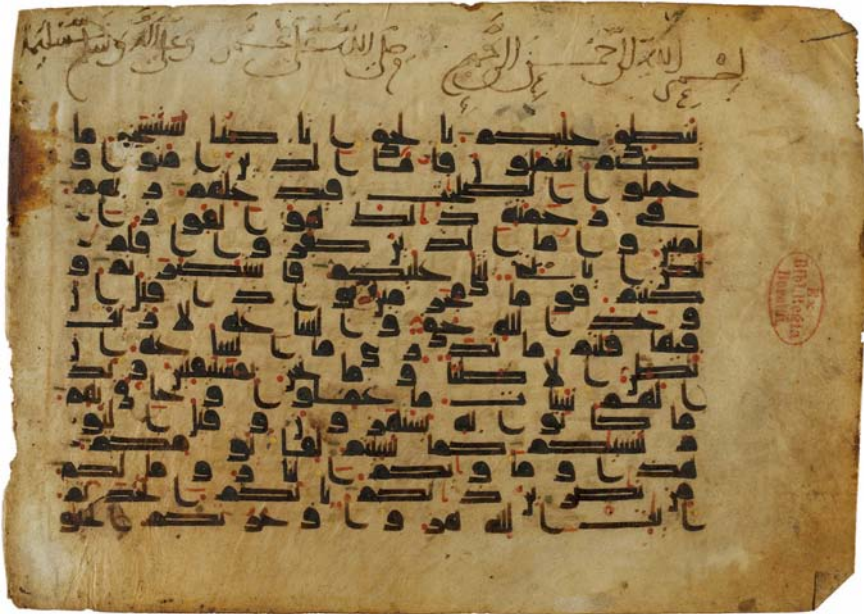 بسم الله الرحمن الرحيم وصلى الله على محمد وعلى اله وسلم تسليما
ينطق عليكم بالحق انا كنا نستنسخ ما
كنتم تعملون فاما الذين امنوا و
عملوا الصلحت فيدخلهم ربهم
في رحمته ذلك هو الفوز ا
لمبين واما الذين كفروا افلم
تكن ايتي تتلى عليكم فاستكبرتم و
كنتم قوما مجرمين واذا قيل ان
وعد الله حق والساعة لا ريب
فيها قلتم ما ندري ما الساعة ان
نظن الا ظنا وما نحن بمستيقنين وبد
ا لهم سيات ما عملوا وحاق بهم
ما كانوا به يستهزون وقيل اليو
م ننسيكم كما نسيتم لقا يومكم
هذا وماويكم النار وما لكم
من نصرين ذلكم بانكم اتخذتم
ايت الله هزوا وغرتكم الحيو